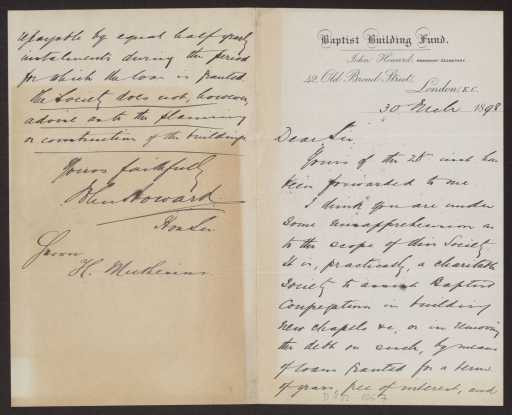 Baptist Building Fund.
John Howard, HONORARY SECRETARY
42, Old Broad Street,
London, E.C.
30 March 1898
Dear Sir
Yours of the 28 inst has
been forwarded to me.
I think you are under
some misapprehension as
to the scope of this Society
It is, practically, a charitable
Society to assist Baptist
Congregations in building
new chapels &c, or in removing
the debt on such, by means
of loans granted for a term
of years, free of interest, and
repayable by equal half yearly
instalments during the period
for which the loan is granted
The Society does not, however,
advise as to the planning
or construction of the buildings
Yours faithfully
John Howard
Hon Sec
H.